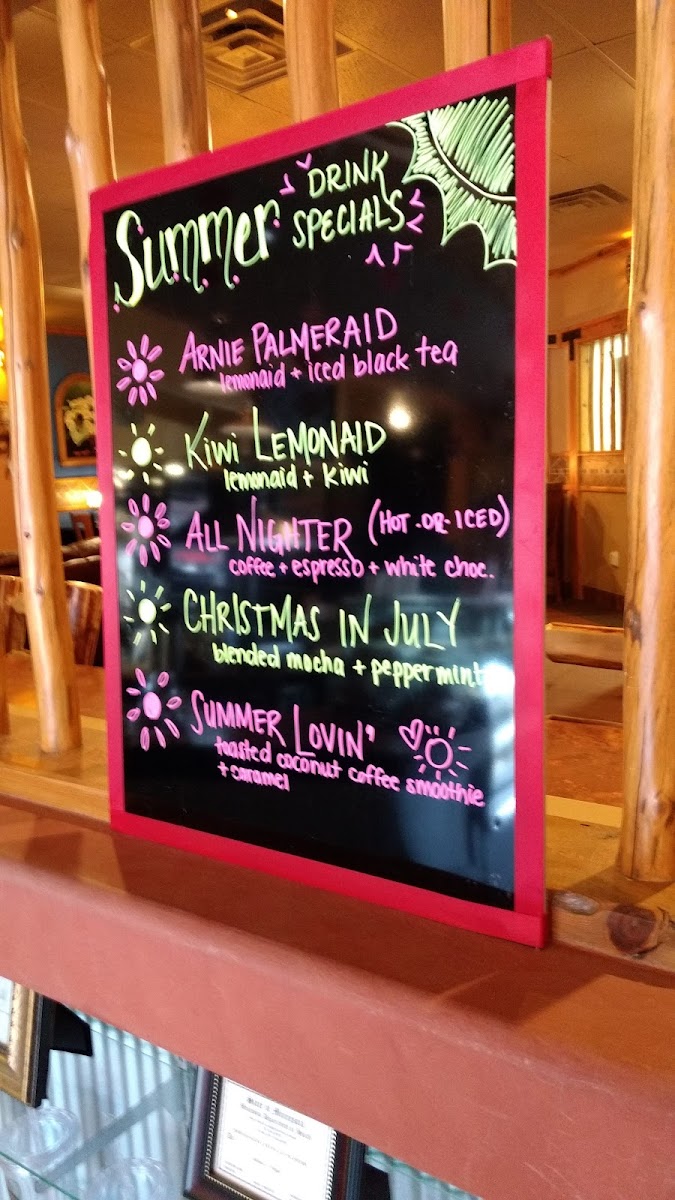 Summer DRINK SPECIALS
ARNIE PALMERAID
lemonaid + iced black tea
KIWI LEMONAID
lemonaid + kiwi
ALL NIGHTER (HOT-OR-ICED)
coffee + espresso + white choc.
CHRISTMAS IN JULY
blended mocha + peppermint
SUMMER LOVIN'
toasted coconut coffee smoothie
+ caramel